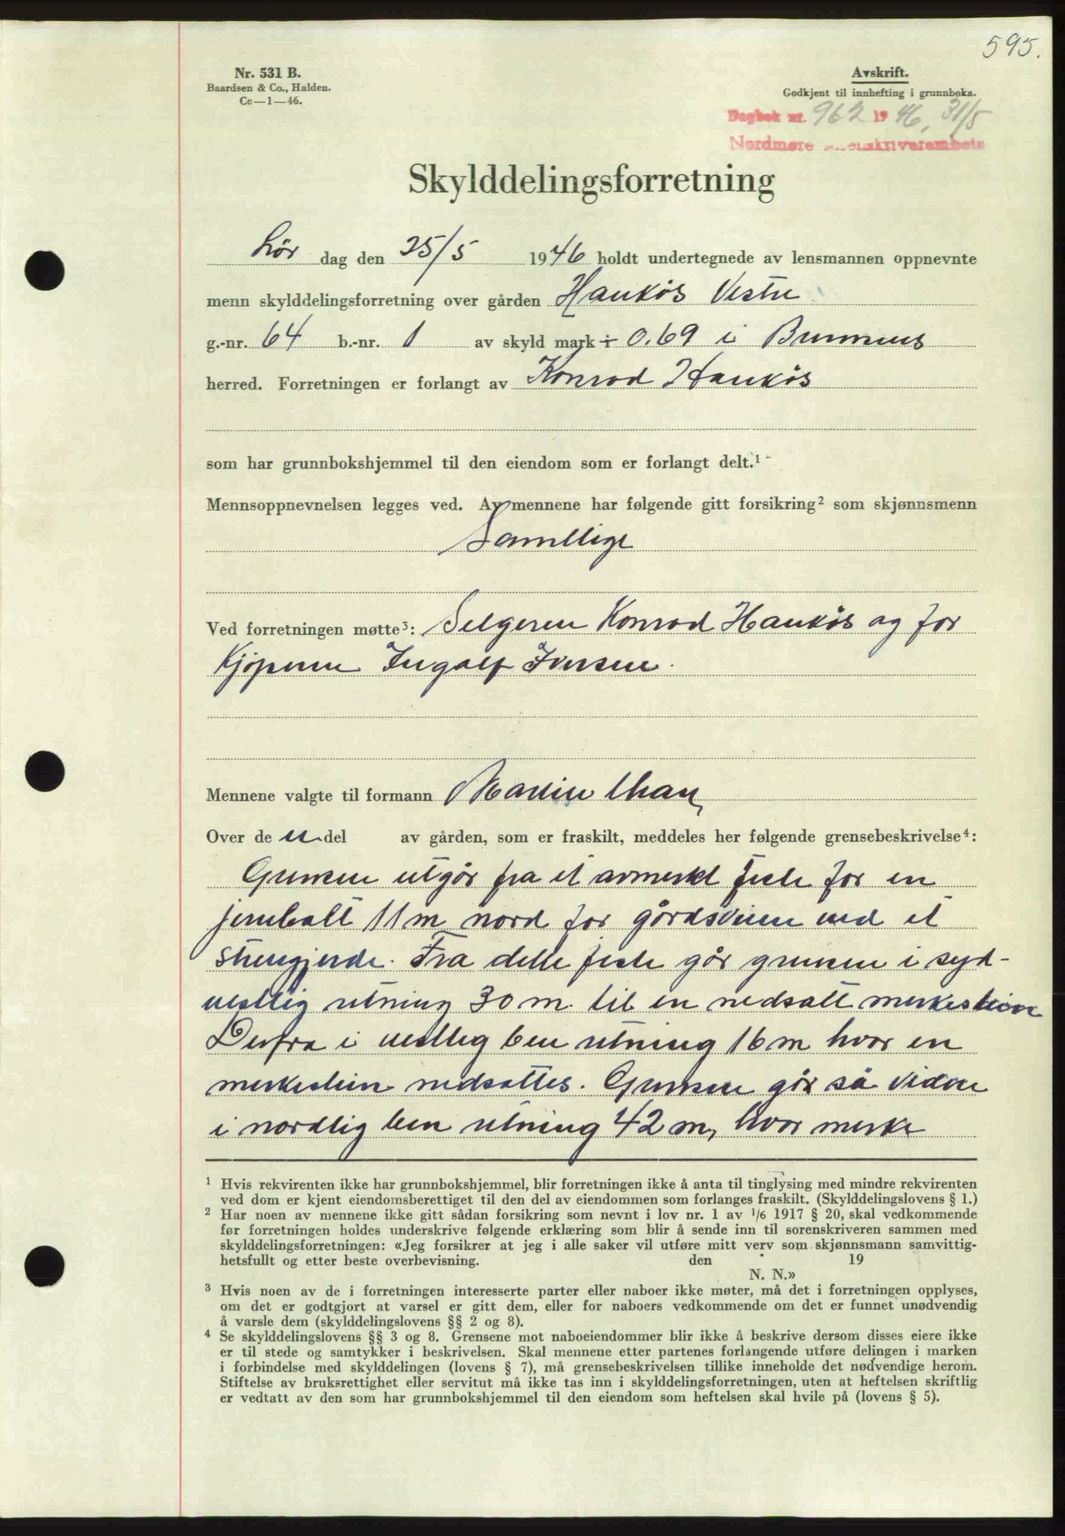 595.
Nr. 531 B.
Baardsen & Co., Halden.
Cc—1—46.
Avskrift.
Godkjent til innhefting i grunnboka.
Dagbok nr. 962 1946, 31/5
Nordmøre sorenskriverembete
Skylddelingsforretning
Lör dag den 25/5 1946 holdt undertegnede av lensmannen oppnevnte
menn skylddelingsforretning over gården Haukös Vestre
g.-nr. 64 b.-nr. 1 av skyld mark ÷ 0.69 i Bremsnes
herred. Forretningen er forlangt av Konrad Haukös
som har grunnbokshjemmel til den eiendom som er forlangt delt.¹
Mennsoppnevnelsen legges ved. Av mennene har følgende gitt forsikring² som skjønnsmenn
Samtlige
Ved forretningen møtte³: Selgeren Konrad Haukös og for
Kjöperen Ingolf Iversen.
Mennene valgte til formann Martin
Over de n del av gården, som er fraskilt, meddeles her følgende grensebeskrivelse⁴:
Grensen utgör fra et avmerket feste for en
jernbolt 11 m nord for gårdsveien ved et
stengjerde. Fra dette feste går grensen i syd-
vestlig retning 30 m til en nedsatt merkestein
Derfra i vestlig ben retning 16 m hvor en
merkestein nedsattes. Grensen går så videre
i nordlig ben retning 42 m, hvor merke
¹ Hvis rekvirenten ikke har grunnbokshjemmel, blir forretningen ikke å anta til tinglysing med mindre rekvirenten
ved dom er kjent eiendomsberettiget til den del av eiendommen som forlanges fraskilt. (Skylddelingslovens § 1.)
² Har noen av mennene ikke gitt sådan forsikring som nevnt i lov nr. 1 av 1/6 1917 § 20, skal vedkommende
før forretningen holdes underskrive følgende erklæring som blir å sende inn til sorenskriveren sammen med
skylddelingsforretningen: «Jeg forsikrer at jeg i alle saker vil utføre mitt verv som skjønnsmann samvittig-
hetsfullt og etter beste overbevisning. den 19
N. N.»
³ Hvis noen av de i forretningen interesserte parter eller naboer ikke møter, må det i forretningen opplyses,
om det er godtgjort at varsel er gitt dem, eller for naboers vedkommende om det er funnet unødvendig
å varsle dem (skylddelingslovens §§ 2 og 8).
⁴ Se skylddelingslovens §§ 3 og 8. Grensene mot naboeiendommer blir ikke å beskrive dersom disses eiere ikke
er til stede og samtykker i beskrivelsen. Skal mennene etter partenes forlangende utføre delingen i marken
i forbindelse med skylddelingen (lovens § 7), må grensebeskrivelsen tillike inneholde det nødvendige herom.
Stiftelse av bruksrettighet eller servitut må ikke tas inn i skylddelingsforretningen, uten at heftelsen skriftlig
er vedtatt av den som har grunnbokshjemmel til den eiendom som heftelsen skal hvile på (lovens § 5).